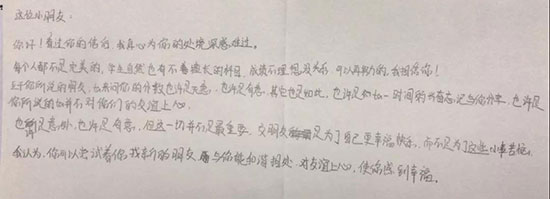 这位小朋友:
你好!看过你的信后,我真心为你的处境深感难过。
每个人都不是完美的,学生自然也有不善擅长的科目,成绩不理想没关系,可以再努力的,我相信你!
至于你所说的朋友,她来问你的分数也许是无意,也许是有意,其它也是如此,也许是她一时间的兴奋忘记与你分享,也许是
你所说的她并不对你们的友谊上心。
也许是意外,也许是有意,但这一切并不是最重要,交朋友是为了自己更幸福快乐,而不是为了这些小事苦恼。
我认为,你可以尝试着你找新的朋友,与你能和谐相处,对友谊上心,使你感到幸福。